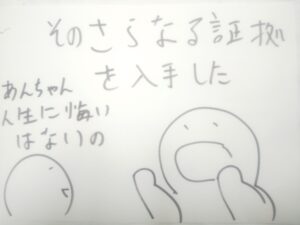 そのさらなる証拠
を入手した
あんちゃん
人生に悔い
はないの